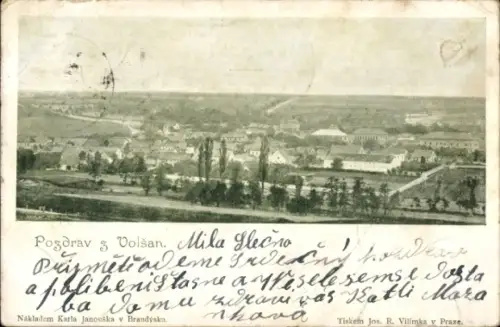 Pozdrav z Volšan.
Mila Slečno
Přijměte odeme Srdečný pozdrav
a polibeni Štasne a Vesele sem se dosta
ba domu zdravi vás Katli Maza
nkova
Nákladem Karla Janouška v Brandýsku.
Tiskem Jos. R. Vilímka v Praze.